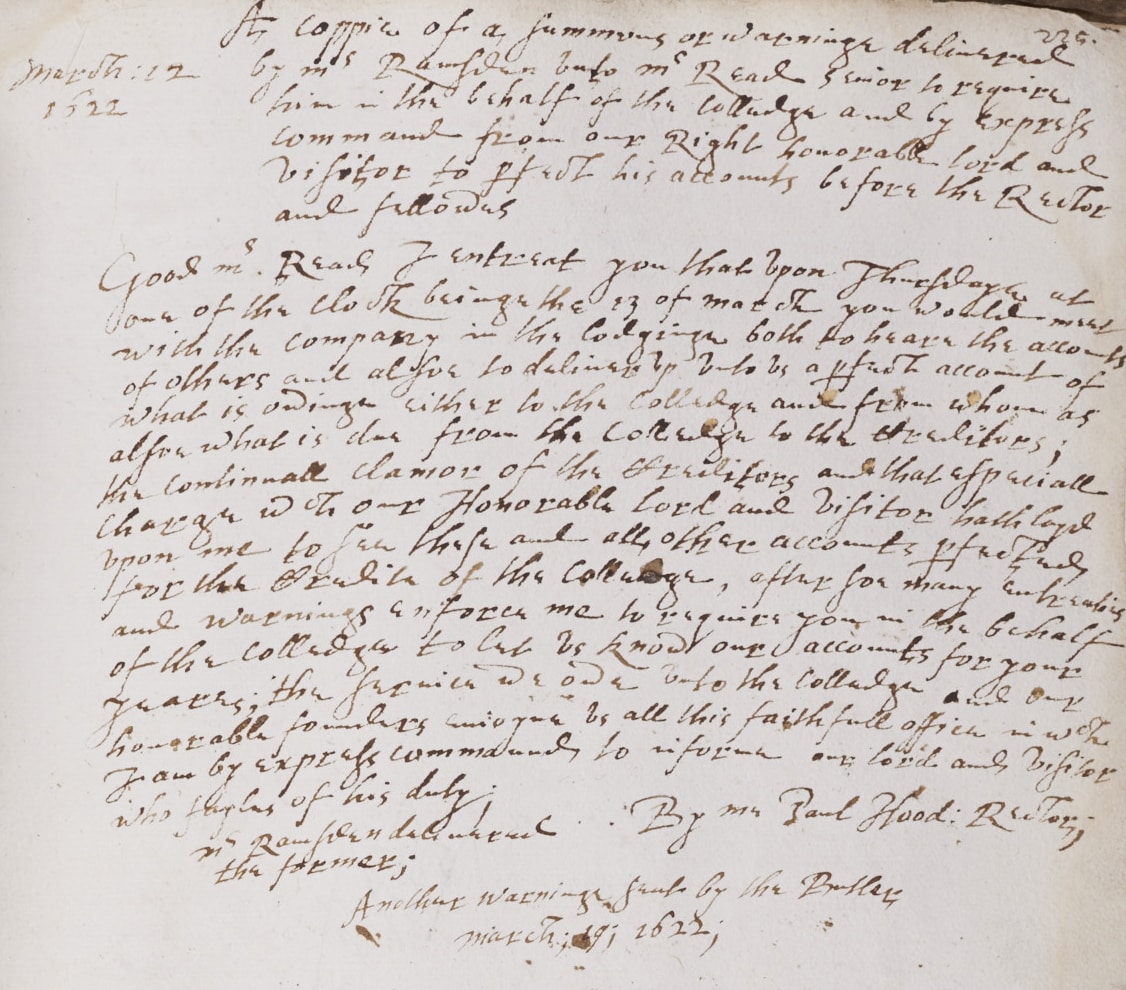 225.
A coppie of a summons or warninge delivered
March: 12 by mr Ramsden vnto mr Read senior to require
1622 him in the behalf of the Colledge and by express
command from our Right honorable lord and
Visitor to pfect his accounts before the Rector
and fellowes
Good mr. Read I entreat you that vpon Thursdaye at
one of the clock beinge the 13 of march you would meet
with the company in the lodginge both to heare the accounts
of others and alsoe to deliver vp vnto vs a pfect account of
what is owinge either to the Colledge and from whom as
alsoe what is due from the Colledge to the Creditors;
the continuall clamor of the Creditors and that especiall
charge wch our Honorable lord and Visitor hath layd
vpon me to see these and all other accounts pfected
for the Credite of the Colledge, after soe many entreaties
and warnings enforce me to require you in the behalf
of the Colledge to let vs know our accounts for your
yeares; the service we owe vnto the Colledge and our
honorable founders enioyne vs all this faithfull office in wch
I am by express command to informe our lord and Visitor
who fayles of his duty;
By me Paul Hood: Rector;
mr Ramsden delivered
the former;
Another warninge sent by the Butler
march; 19; 1622;